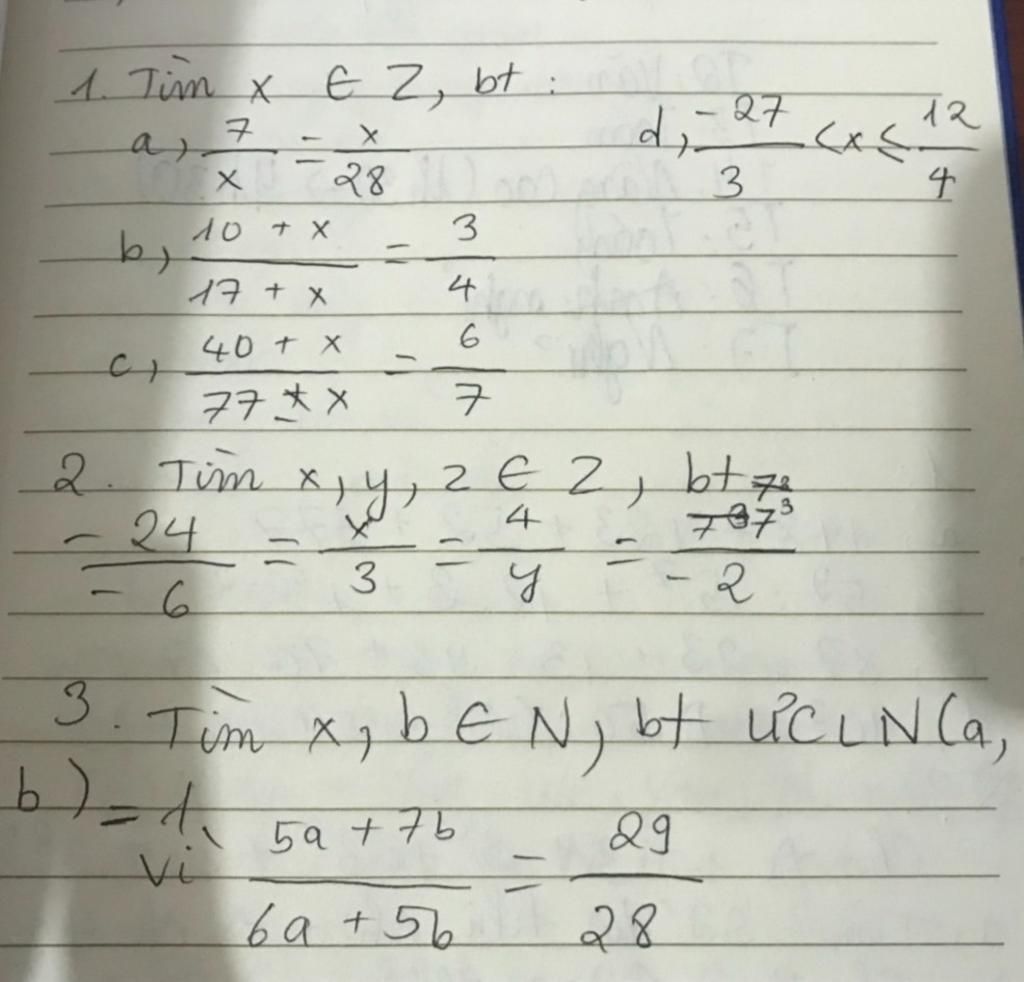 1. Tìm x ∈ Z, bt :
a, 7/x = x/28
d, -27/3 < x ≤ 12/4
b, 10 + x / 17 + x = 3/4
c, 40 + x / 77 + x = 6/7
2. Tìm x, y, z ∈ Z, bt
-24/-6 = x/3 = 4/y = z³/-2
3. Tìm x, b ∈ N, bt ƯCLN(a,
b) = 1
Vì 5a + 7b / 6a + 5b = 29/28